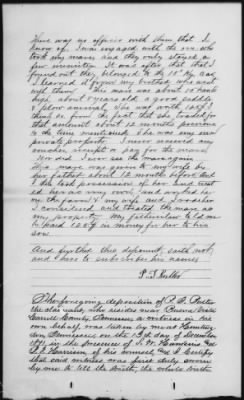 There was no officer with them that I
know of. I was engaged with the one who
took my mare and they only stayed a
few minutes. It was after that that I
found out they belonged to the 15" Ky Cav
I learned it from my brother who went
with them. This mare was about 15 hands
high about 8 years old a good saddle
& plow animal. She was worth $125 I
think so from the fact that she traded for
that amount about 12 months previous
to the time mentioned. She was my own
private property. I never received any
voucher receipt or pay for the mare
Nor did I ever see the mare again
This mare was given to my wife by
her father about 12 months before and
I this had possession of her and used
her as my own and worked her
on the farm & my wife and I
I considered and treated the mare as
my property. My father in law told me
he paid 125$ in money for her to his
son.
And further this deponent saith not,
and hereto subscribes his name
The foregoing deposition of
the claimant, who resides near Buena Vista
Carroll County, Tennessee a witness in his
own behalf, was taken by me at Huntingdon
Tennessee on the 13th day of
1871 in the presence of J. W.
of his counsel, and I certify
that said witness was first duly sworn
by me to tell the truth, the whole truth